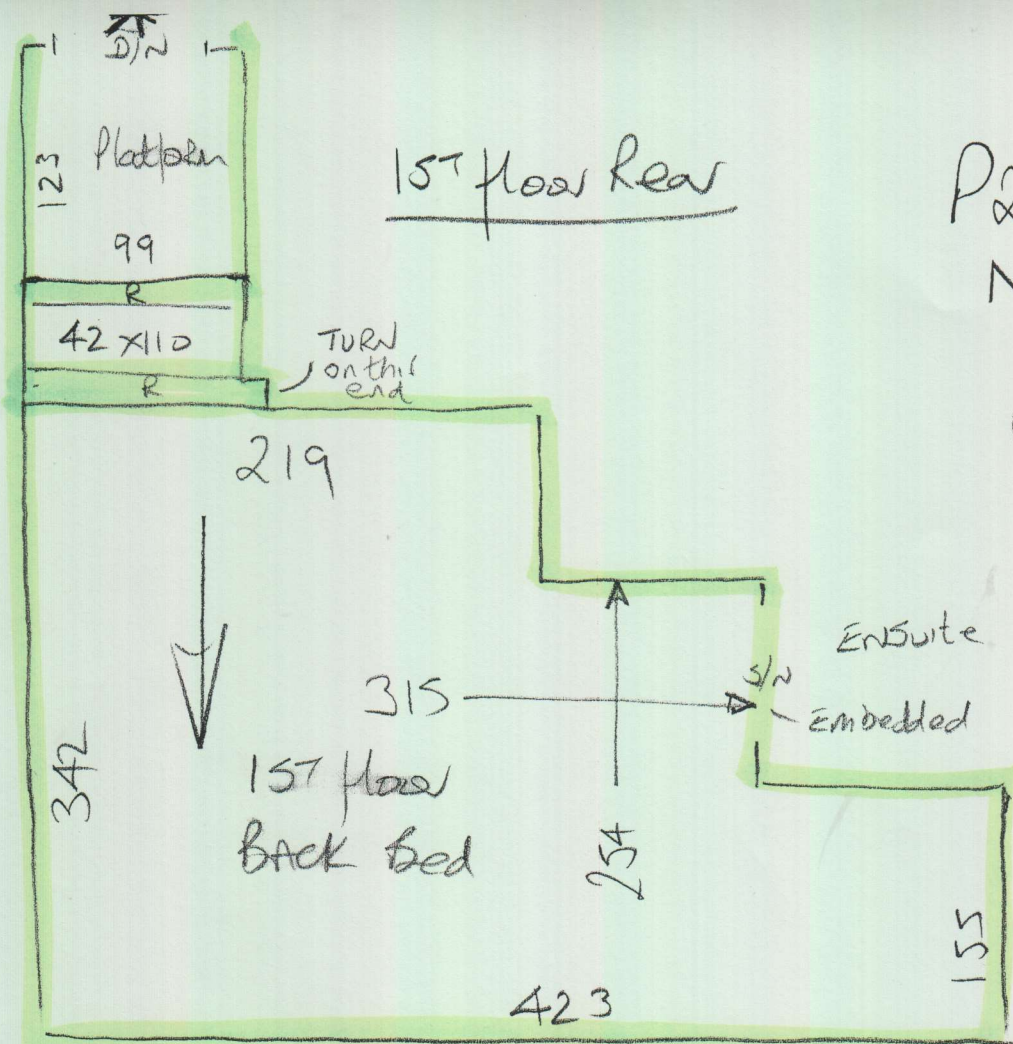 D/N
Platform
123
99
R
42 x 110
R
TURN
on this
end
1ST floor Rear
219
342
315
1ST floor
BACK Bed
254
S/N
ENSuite
Embedded
155
423